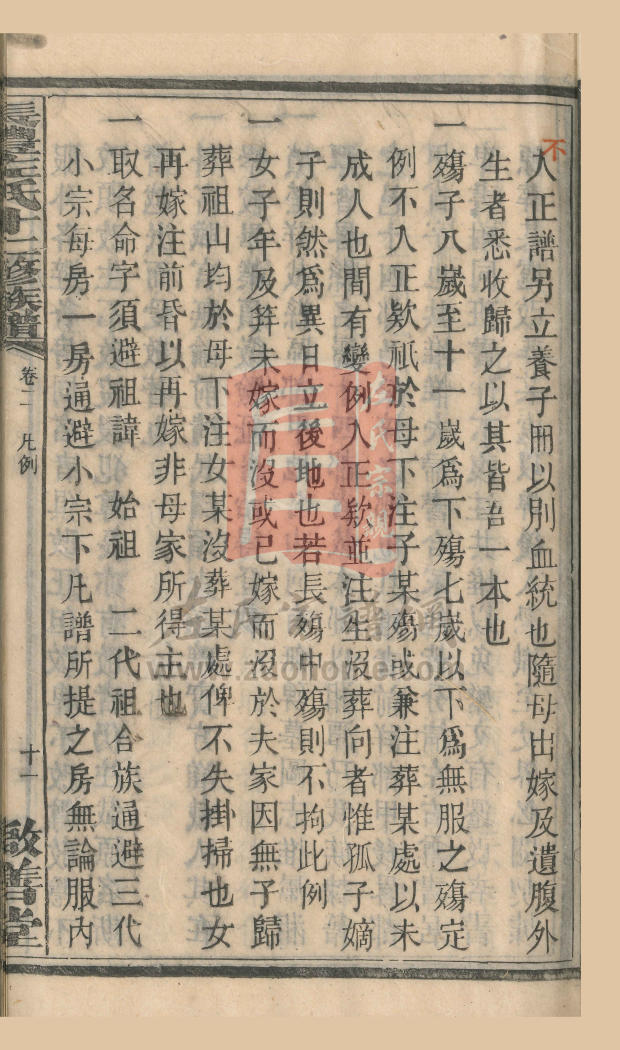 不
入正譜另立養子冊以別血統也隨母出嫁及遺腹外
生者悉收歸之以其皆吾一本也
一殤子八歲至十一歲爲下殤七歲以下爲無服之殤定
例不入正欵祇於母下注子某殤或兼注葬某處以未
成人也間有變例入正欵並注生沒葬向者惟孤子嫡
子則然爲異日立後地也若長殤中殤則不拘此例
一女子年及笄未嫁而沒或已嫁而沒於夫家因無子歸
葬祖山均於母下注女某沒葬某處俾不失掛掃也女
再嫁注前昏以再嫁非母家所得主也
一取名命字須避祖諱 始祖 二代祖合族通避三代
小宗每房一房通避小宗下凡譜所提之房無論服內
長豐左氏十二修族譜 卷二 凡例 十一 敬善堂
左氏宗親
www.zuohome.com